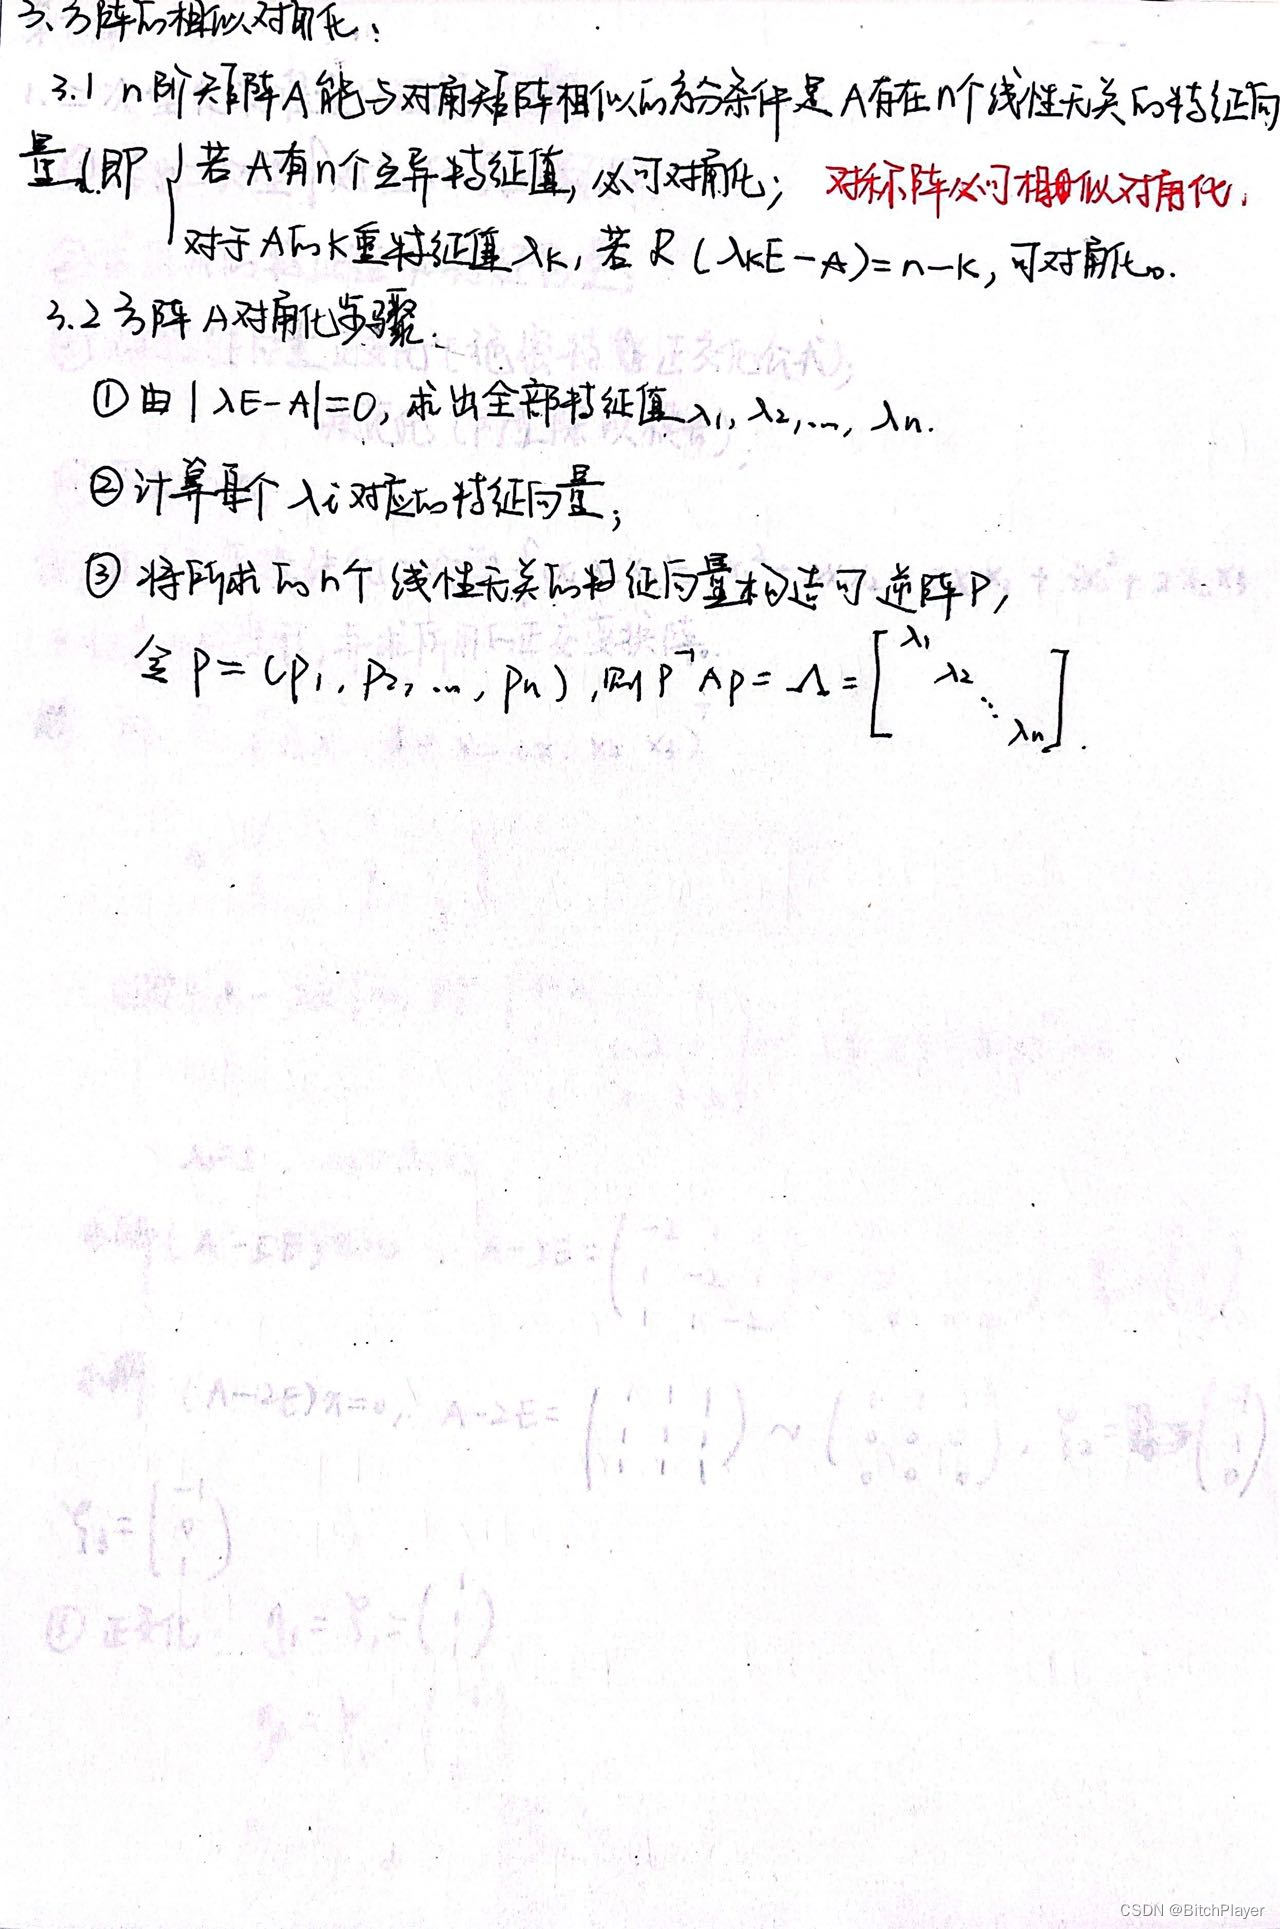 3.方阵的相似对角化:
3.1 n阶矩阵A能与对角矩阵相似的充分条件是A存在n个线性无关的特征向
量(即{若A有n个互异特征值,必可对角化; 对称阵必可相似对角化.
对于A的K重特征值λK,若R(λKE-A)=n-K,可对角化。
3.2方阵A对角化步骤:
①由|λE-A|=0,求出全部特征值λ1,λ2,...,λn.
②计算每个λi对应的特征向量;
③将所求的n个线性无关的特征向量构造可逆阵P,
令P=(P1,P2,...,Pn),则P⁻¹AP=Λ=[λ1 λ2 ⋱ λn].
A-2E=
(A-2E)x=0, A-2E=(1 1 1 1 1 1 1 1 1)~
ξ3=(-1 0 1)
正交化 =ξ1=
CSDN @BitchPlayer